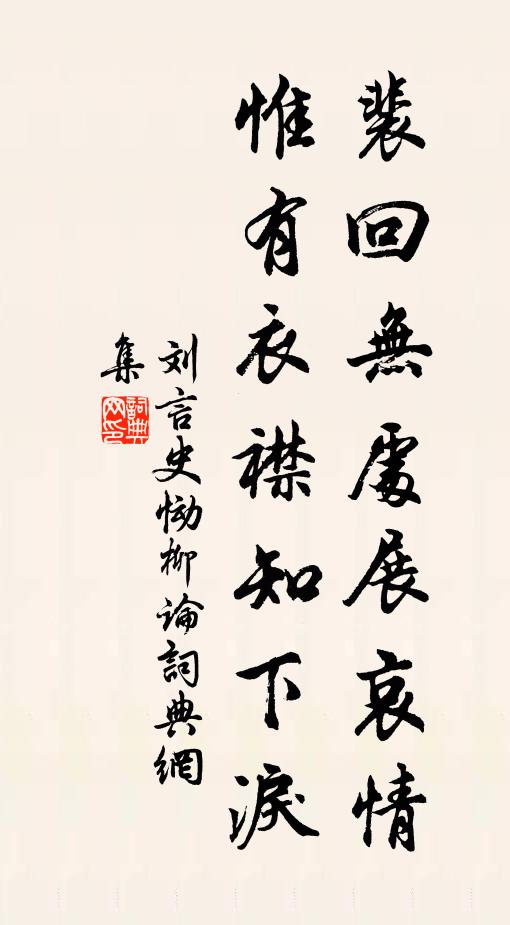 裴回無處展哀情
惟有衣襟知下淚
刘言史恸柳论詞典網
集
詞典网印